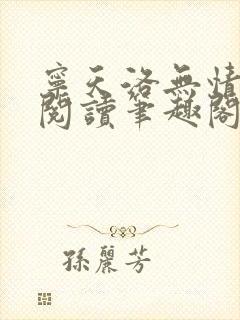 寧天洛無情
閱讀筆趣閣
孫麗芳